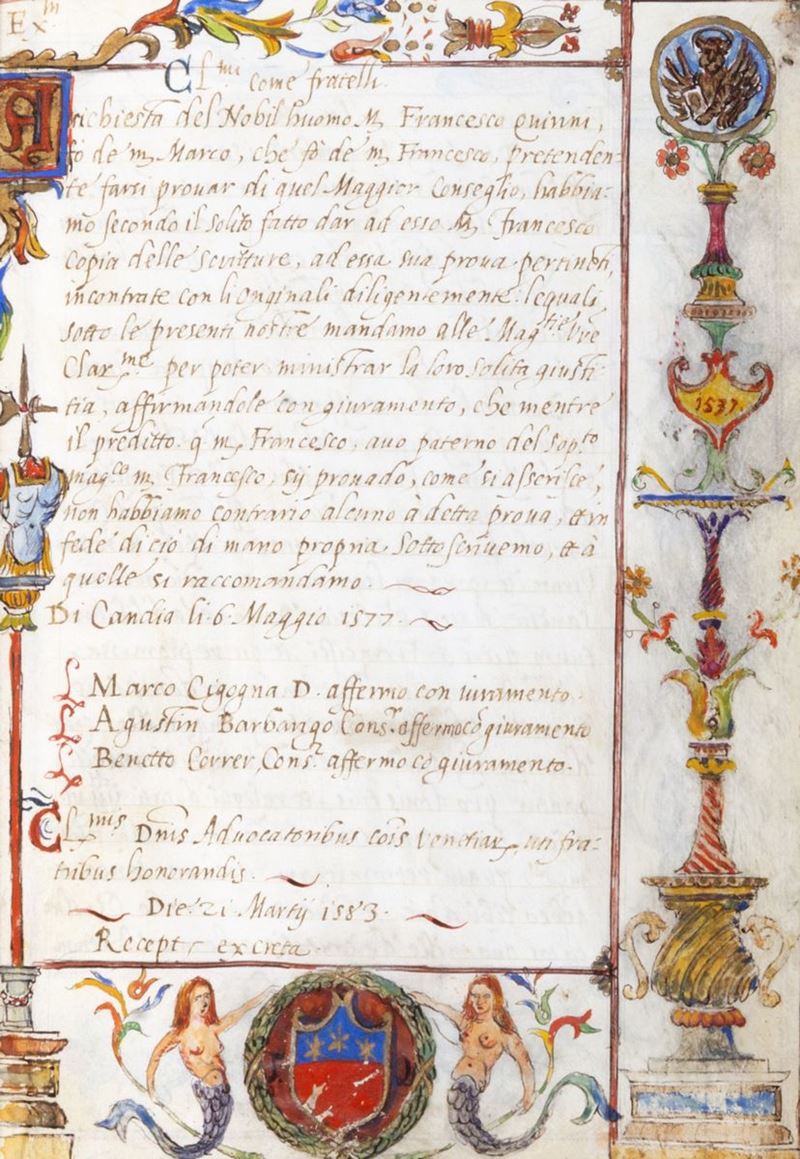 Ex^m
Cl^mi come fratelli.
A richiesta del Nobil huomo M. Francesco Quirini,
fò de m. Marco, che fò de m. Francesco, pretenden=
te farsi provar di quel Maggior Conseglio, habbia=
mo secondo il solito fatto dar ad esso M. Francesco
copia delle scritture, ad essa sua prova pertinēti,
incontrate con li originali diligentemente. lequali
sotto le presenti nostre mandamo alle Mag^tie Vre
Clar^me per poter ministrar la loro solita giusti=
tia, affirmandole con giuramento, che mentre
il preditto q. m. Francesco, avo paterno del sop^to
mag^co m. Francesco, sij provado, come si asserisce,
non habbiamo contrario alcuno à detta prova, et in
fede di ciò di mano propria sottoscrivemo, et à
quelle si raccomandamo.
Di Candia li 6 Maggio 1577.
Marco Cigogna D. affermo con iuramento.
Agustin Barbarigo Cons.^r affermo cō giuramento
Benetto Correr, Cons.^r affermo cō giuramento.
Cl^mis Dnis Advocatoribus cōis Venetiar, uti fra=
tribus honorandis.
Die 21 Martij 1583.
Recept ex creta.
1537.